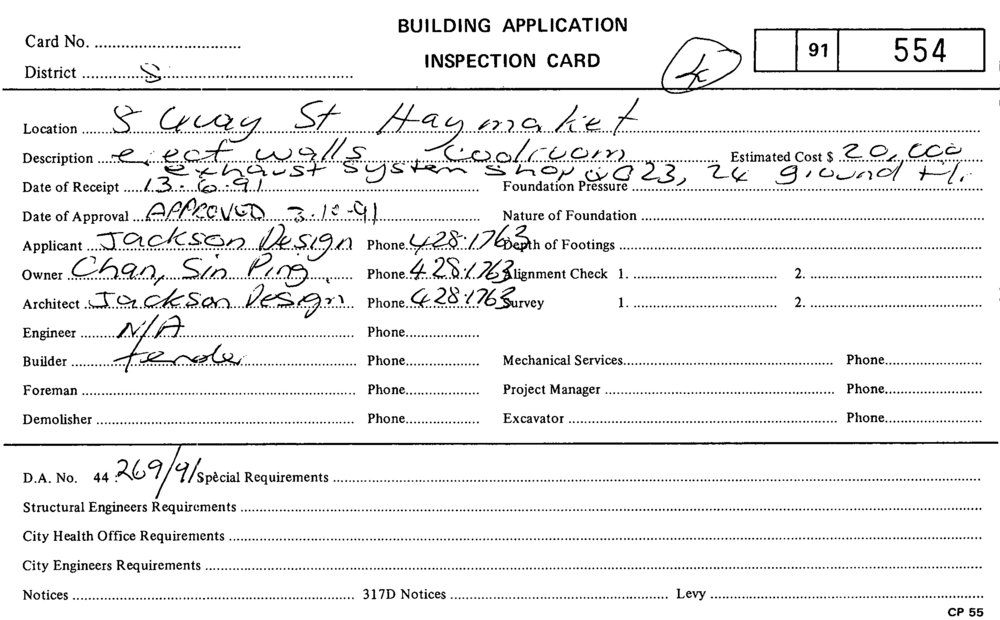 BUILDING APPLICATION
INSPECTION CARD
Card No. ....................
District S
91 554
Location 8 Quay St Haymarket
Description erect walls Coolroom Estimated Cost $ 20,000
exhaust system shop 23, 24 ground fl.
Date of Receipt 13.6.91 Foundation Pressure
Date of Approval APPROVED 3.10.91 Nature of Foundation
Applicant Jackson Design Phone 428.1763 Depth of Footings
Owner Chan, Sin Ping Phone 428.1763 Alignment Check 1. 2.
Architect Jackson Design Phone 428.1763 Survey 1. 2.
Engineer N/A Phone
Builder tender Phone Mechanical Services Phone
Foreman Phone Project Manager Phone
Demolisher Phone Excavator Phone
D.A. No. 44 269/91 Special Requirements
Structural Engineers Requirements
City Health Office Requirements
City Engineers Requirements
Notices 317D Notices Levy
CP 55